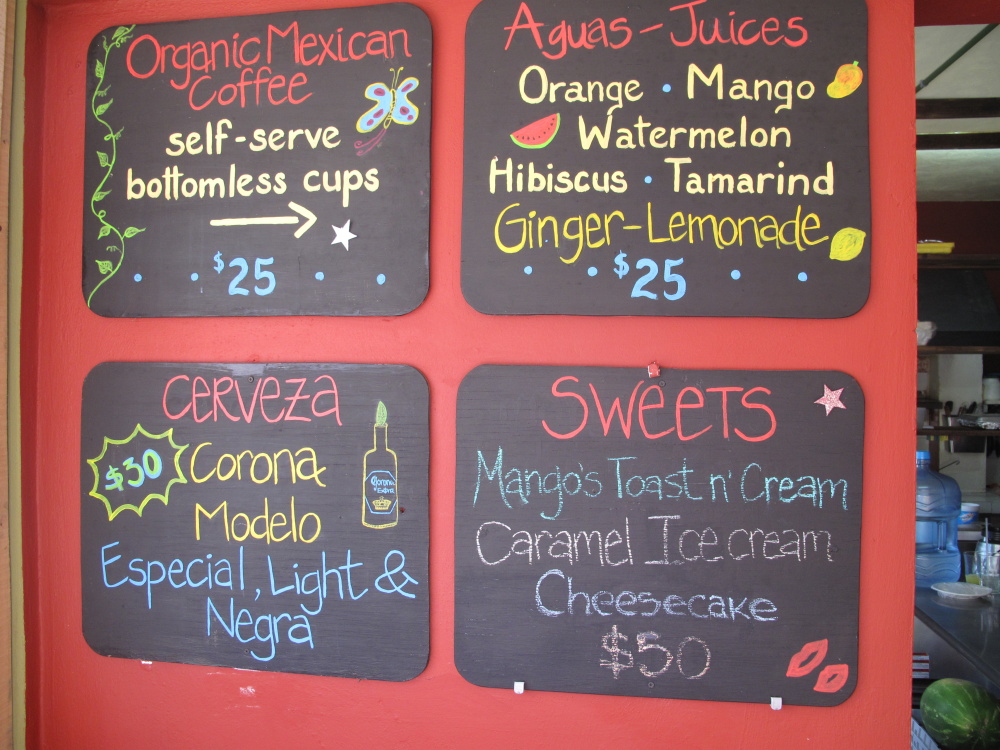 Organic Mexican
Coffee
self-serve
bottomless cups
$25
Aguas-Juices
Orange · Mango
Watermelon
Hibiscus · Tamarind
Ginger-Lemonade
$25
Cerveza
$30
Corona
Modelo
Especial, Light &
Negra
Corona
Extra
Sweets
Mango's Toast n' Cream
Caramel Ice cream
Cheesecake
$50